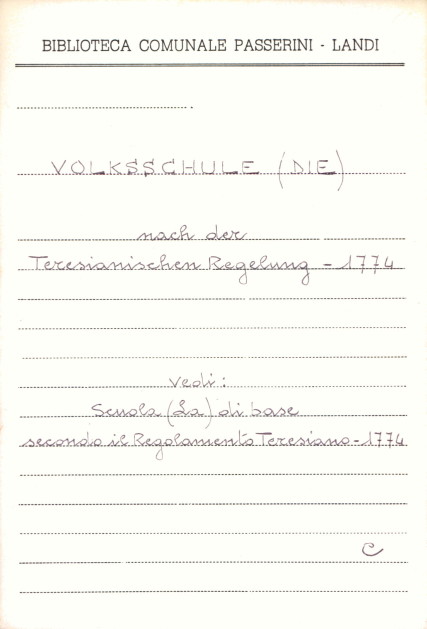 BIBLIOTECA COMUNALE PASSERINI - LANDI
VOLKSSCHULE (DIE)
nach der
Teresianischen Regelung - 1774
vedi:
Scuola (La) di base
secondo il Regolamento Teresiano - 1774
C